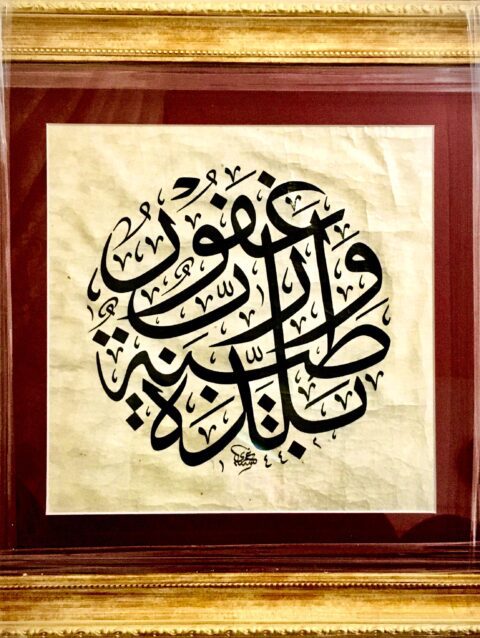 بَلْدَةٌ طَيِّبَةٌ وَرَبٌّ غَفُورٌ